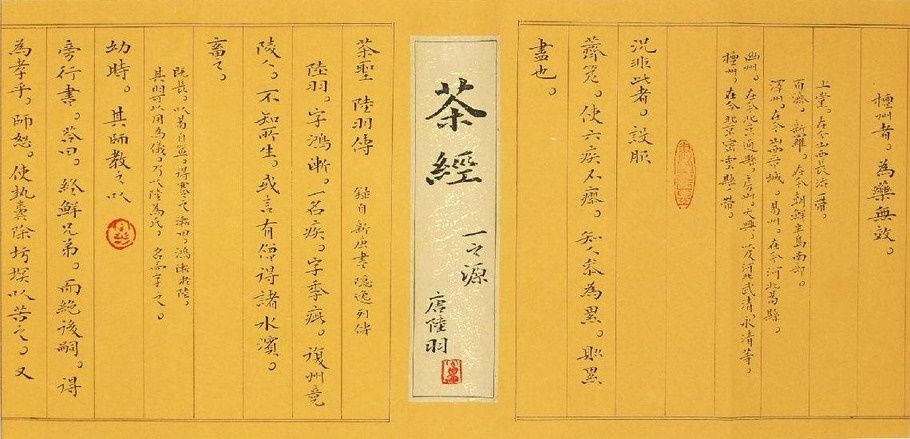 檀州者。為藥無效。
上黨。在今山西長治一帶。
百濟。新羅。在今朝鮮半島南部。
澤州。在今山西晉城。易州。在今河北易縣。
幽州。在今北京通縣。房山。大興。以及河北武清。永清等。
檀州。在今北京密雲縣一帶。
況非此者。設服
薺苨。使六疾不瘳。知人參為累。則累
盡也。
茶經
一之源
唐陸羽
茶聖 陸羽傳 錄自新唐書隱逸列傳
陸羽。字鴻漸。一名疾。字季疵。復州竟
陵人。不知所生。或言有僧得諸水濱。
畜之。
既長。以易自筮。得蹇之漸曰。鴻漸於陸。
其羽可以用為儀。乃以陸為氏。名而字之。
幼時。其師教之以
旁行書。答曰。終鮮兄弟。而絕後嗣。得
為孝乎。師怒。使執糞除圬塓以苦之。又